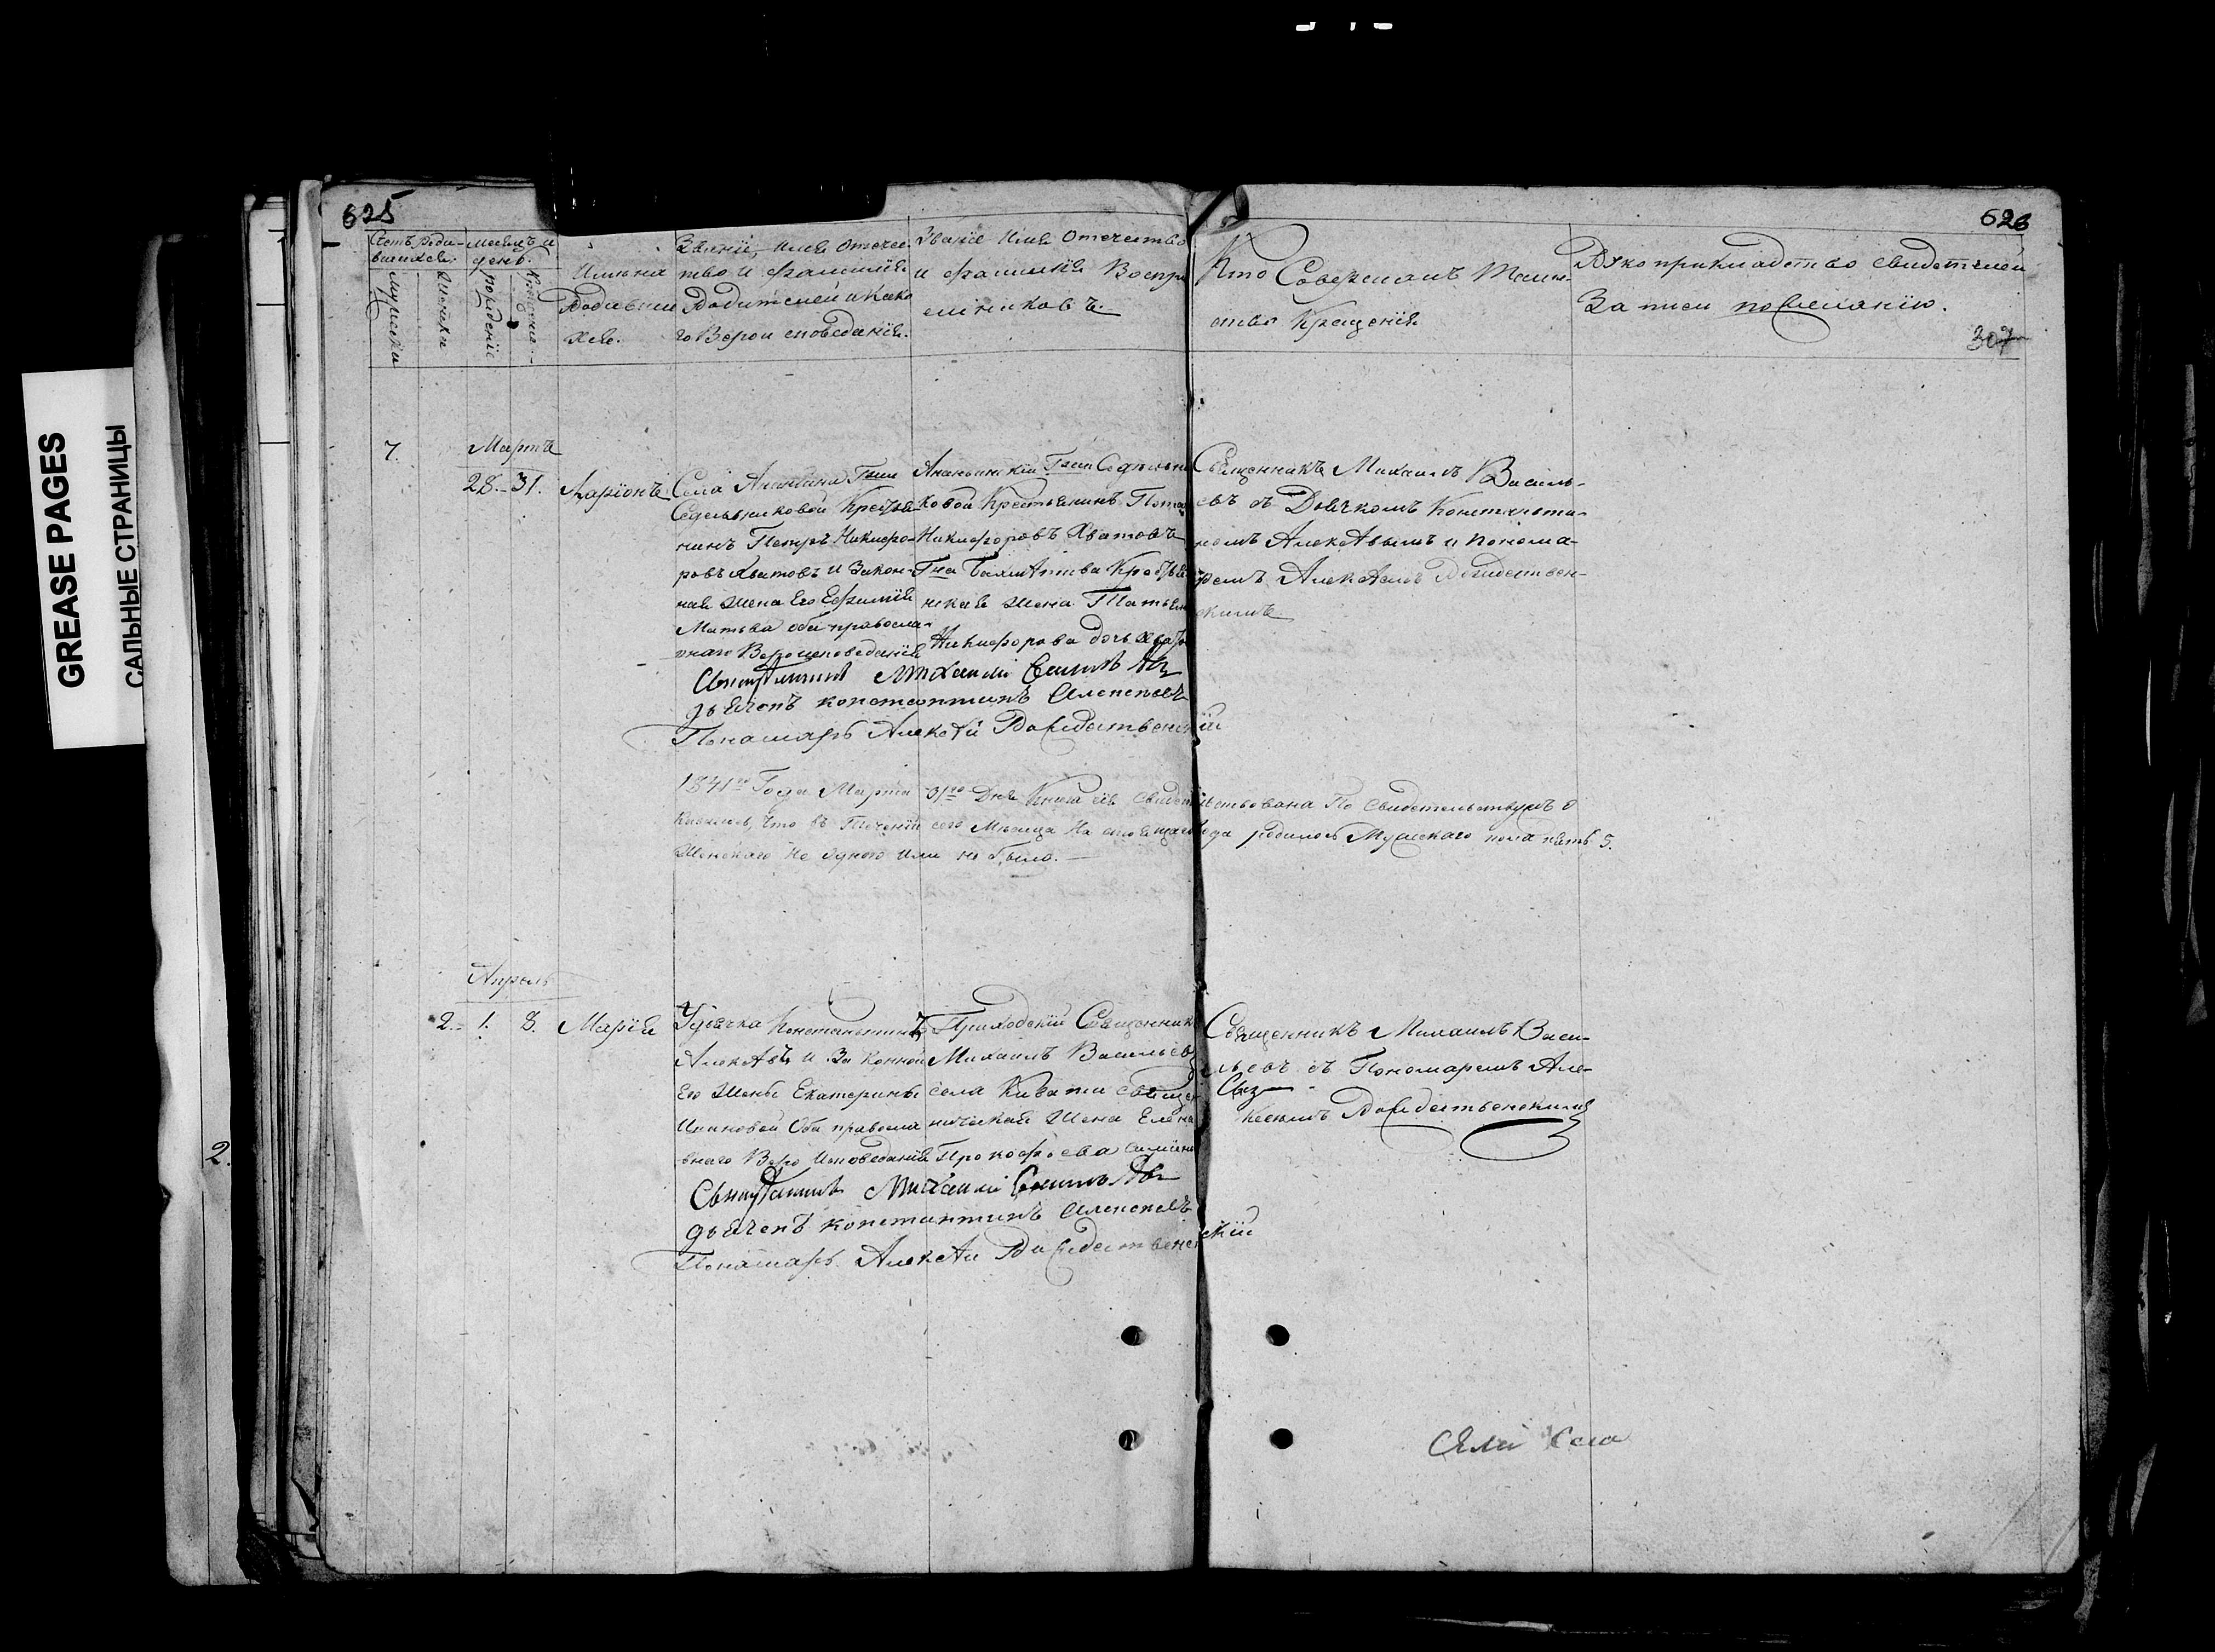 GREASE PAGES
САЛЬНЫЕ СТРАНИЦЫ
625
626
307
Счетъ роди-
вшихся.
Мужеска
Женска
месяцъ и
день.
рожденiе
Имѣна
Родивши
хся.
Званiе, имя отечес
тво и фамилiя
Родителей и како
го Вероисповеданiя.
Званiе Имя Отечество
и фамилiя Воспрi
емниковъ.
Кто Совершалъ Таин-
ство Крещенiя
Рукоприкладство свидетелей
Записи по желанiю.
7.
Мартъ
28. 31.
Ларiонъ
Села Ананьина Гжи
Седельниковой Крестья
нинъ Петръ Никифо-
ровъ Хватовъ и Закон-
ная Жена Его Ефимiя
Матвеева оба правосла-
внаго Вероисповеданiя
Ананьинскiй Гжи Седельни
ковой Крестьянинъ
Никифоровъ Хватовъ
Крестья
нская Жена Татьяна
Никифорова дочь
Священникъ Михаилъ Василь-
евъ съ Дьячкомъ Константи-
номъ Алексѣвымъ и Понома-
ремъ Алексѣемъ Рождествен-
скимъ
Священникъ Михаилъ Васильевъ
дьячекъ константинъ Алексѣевъ
Понамарь Алексѣй Рождественскiй
1841го Года Марта 31го Дня Книга сiя свидетельствована По свидетельствумъ о
казалось, что въ Теченiи сего Месяца На стоящаго года родилось Мужескаго пола пять 5.
Женскаго Не одного Или не было.
Апрель
2. 1. 3. Марiя
Удьячка Константина
Алексѣва и Законной
Его Жены Екатерины
Ивановой Оба правосла
внаго Веро Исповеданiя
Приходскiй Священникъ
Михаилъ Васильевъ
села Кивати свящe
ническая Жена Елена
Прокофьева
Священникъ Михаилъ Васи-
льевъ съ Пономаремъ Але-
ксѣемъ Рождественскимъ
2.
Священникъ Михаилъ Васильевъ
дьячекъ константинъ Алексѣевъ
Понамарь Алексѣй Рождественскiй
Села